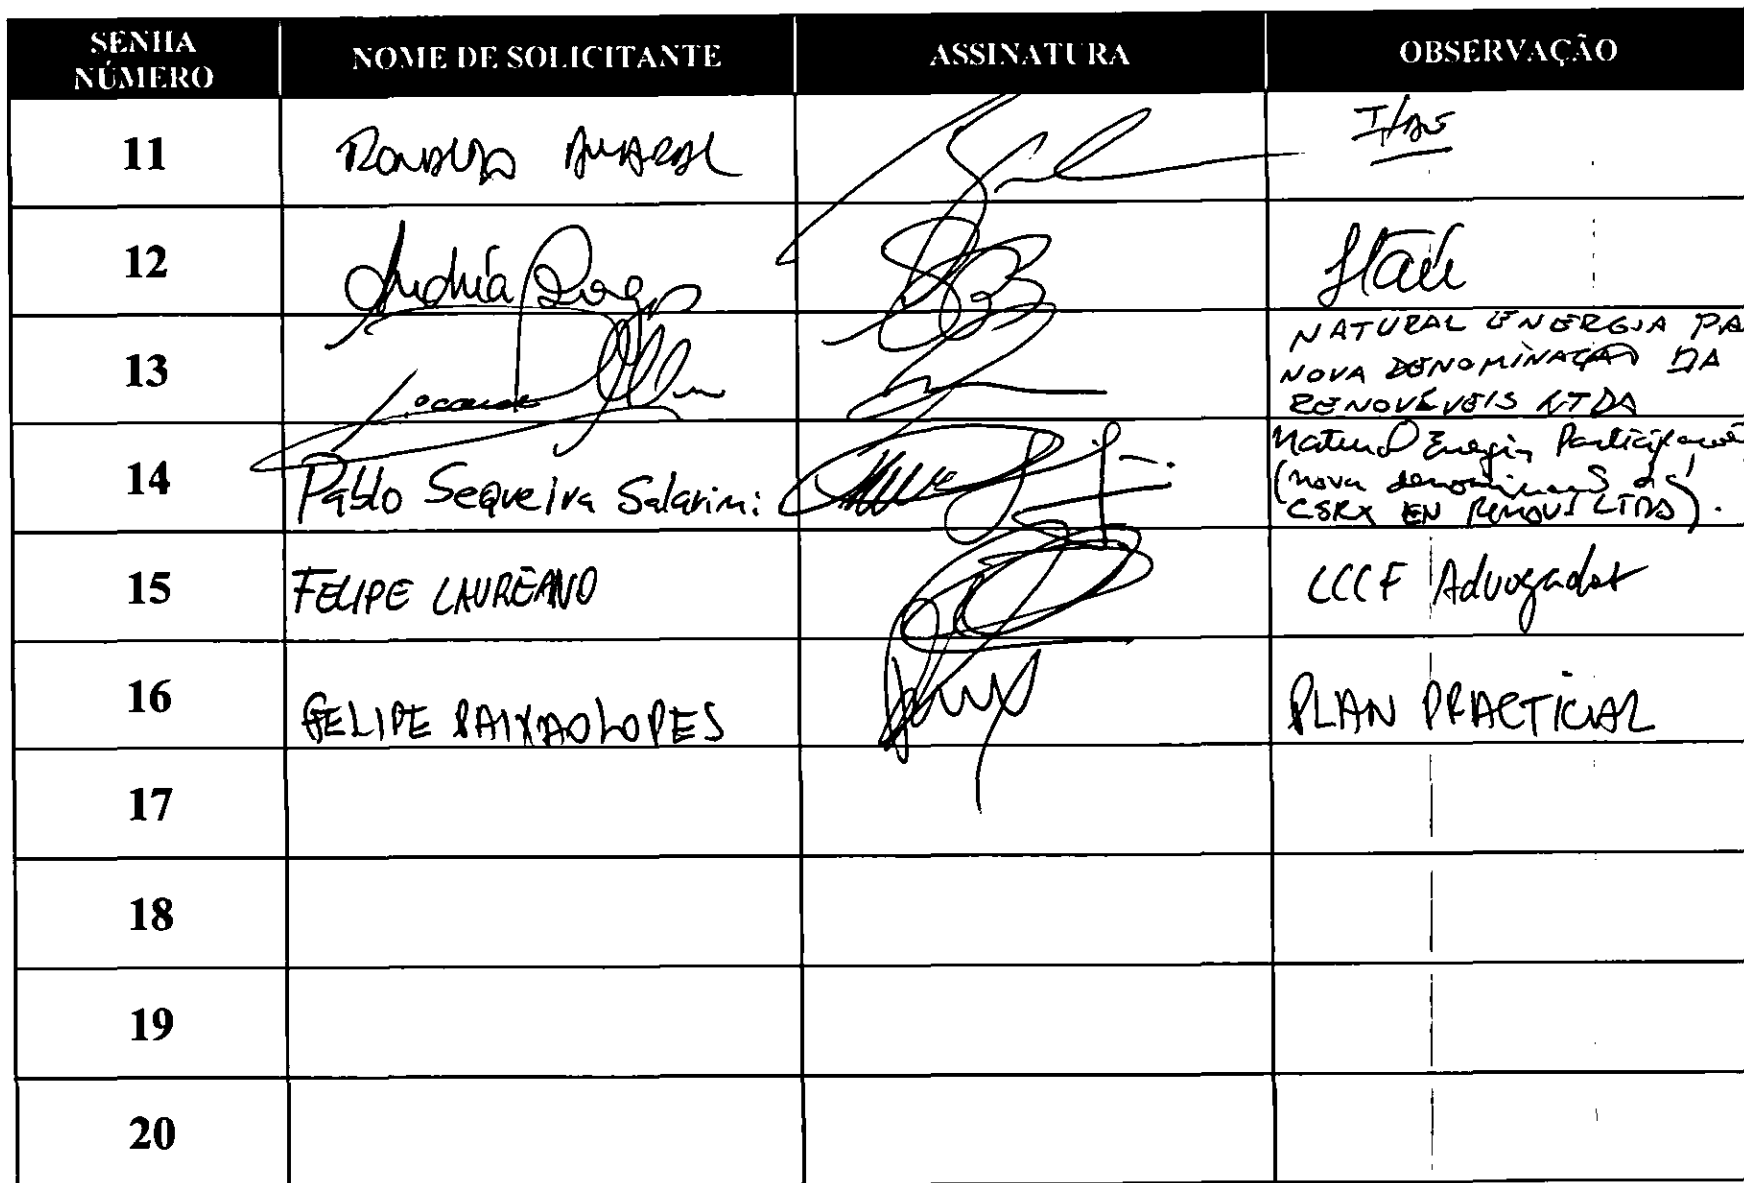 SENHA NÚMERO NOME DE SOLICITANTE ASSINATURA OBSERVAÇÃO
11 RONALDO AMARAL ITAÚ
12 Andréa Borges Itaú
13
NATURAL ENERGIA PA
NOVA DENOMINAÇÃO DA
RENOVÉVEIS LTDA
14 Pablo Sequeira Salarini
Natural Energia Participações
(nova
CSRX EN LTDA).
15 FELIPE LAUREANO LCCF Advogados
16 FELIPE PAIXAO LOPES PLAN PRACTICAL
17
18
19
20